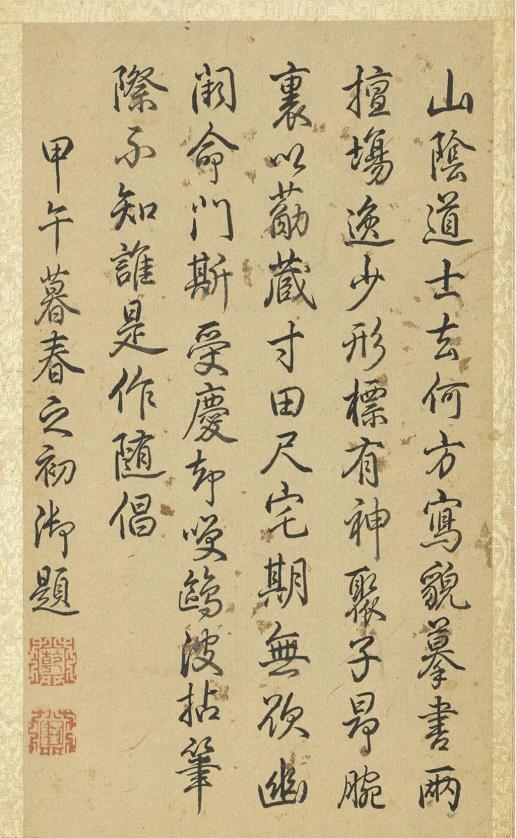 山陰道士去何方寫貌摹書兩
擅場逸少形標有神聚子昂腕
裏以筋藏寸田尺宅期無欲幽
闕命門斯受慶却咲鷗波拈筆
際不知誰是作隨倡
甲午暮春之初御題